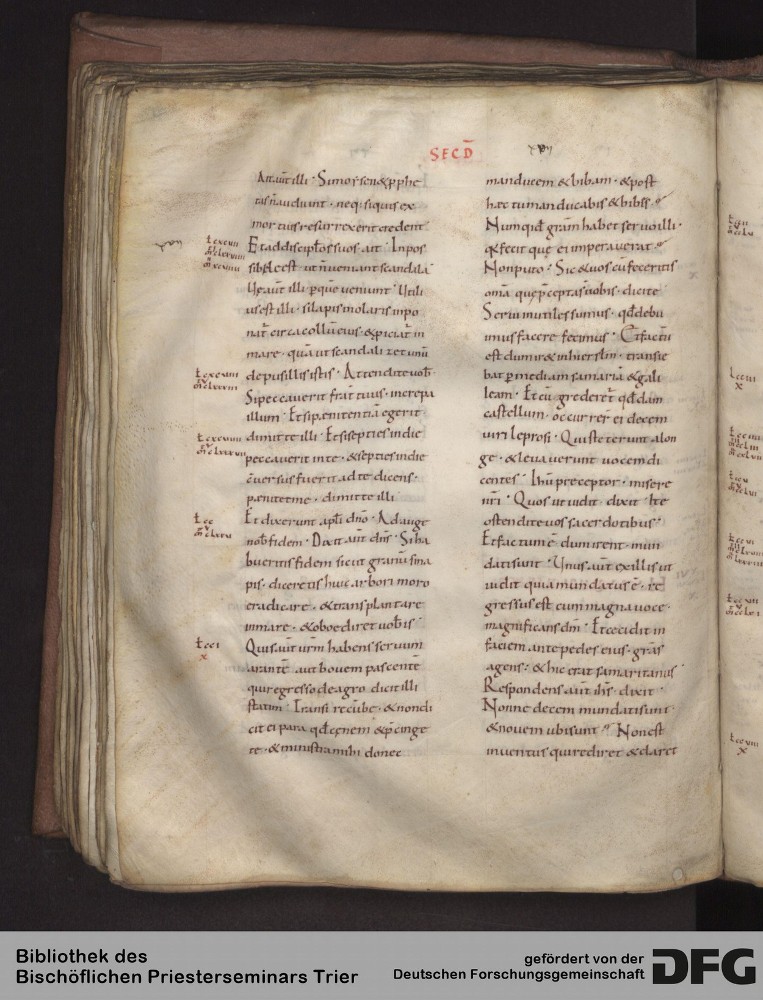 SECD̄ xvii
Ait aut̄ illi · Si moysen & p̄phe
tas n̄ audiunt · neq; si quis ex
mortuis resurrexerit credent
Et ad discip̄los suos ait · Inpos
sibile est ut n̄ veniant scandala
Ue aut̄ illi p̄ quē veniunt · Utili
us est illi · si lapis molaris inpo
nat̄ circa collū eius · & p̄iciat̄ in
mare · quā ut scandalizet unū
de pusillis istis · Attendite vob̄
Si peccaverit frat̄ tuus · increpa
illum · Et si penitentiā egerit ·
dimitte illi · Et si septies in die
peccaverit in te · & septies in die
c̄versus fuerit ad te dicens ·
penitet me · dimitte illi
Et dixerunt apl̄i dn̄o · Adauge
nob̄ fidem · Dixit aut̄ dn̄s · Si ha
bueritis fidem sicut granū sina
pis · diceretis huic arbori moro
eradicare · & transplantare
in mare · & oboediret vob̄is
Quis aut̄ urm̄ habens servum
arantē aut bovem pascentē
qui regresso de agro dicit illi
statim · Transi recūbe · & non di
cit ei para qd̄ cęnem & p̄cinge
te · & ministra mihi donec
manducem & bibam · & post
hęc tu manducabis & bibes
Numquid gr̄am habet servo illi ·
q̄ fecit quę ei imperaverat
Non puto · Sic & vos cū feceritis
om̄a quę p̄cepta s̄ vobis · dicite
Servi inutiles sumus · qd̄ debu
imus facere fecimus · Et factū
est dum ir& in hierslm̄ · transie
bat p̄ mediam samariā & gali
leam · Et cū ingrederet̄ qd̄dam
castellum · occurrer̄ ei decem
viri leprosi · Qui steterunt a lon
ge · & levaverunt vocem di
centes · Ih̄u preceptor · misere
nr̄i · Quos ut vidit · dixit · Ite
ostendite vos sacerdotibus ·
Et factum ē dum irent · mun
dati sunt · Unus aut̄ ex illis ut
vidit quia mundatus ē · re
gressus est cum magna voce ·
magnificans dm̄ · Et cecidit in
faciem ante pedes eius · gr̄as
agens · & hic erat samaritanus
Respondens aut̄ ih̄s · dixit ·
Nonne decem mundati sunt ·
& novem ubi sunt · Non est
inventus qui rediret & daret
Bibliothek des
Bischöflichen Priesterseminars Trier
gefördert von der
Deutschen Forschungsgemeinschaft
DFG